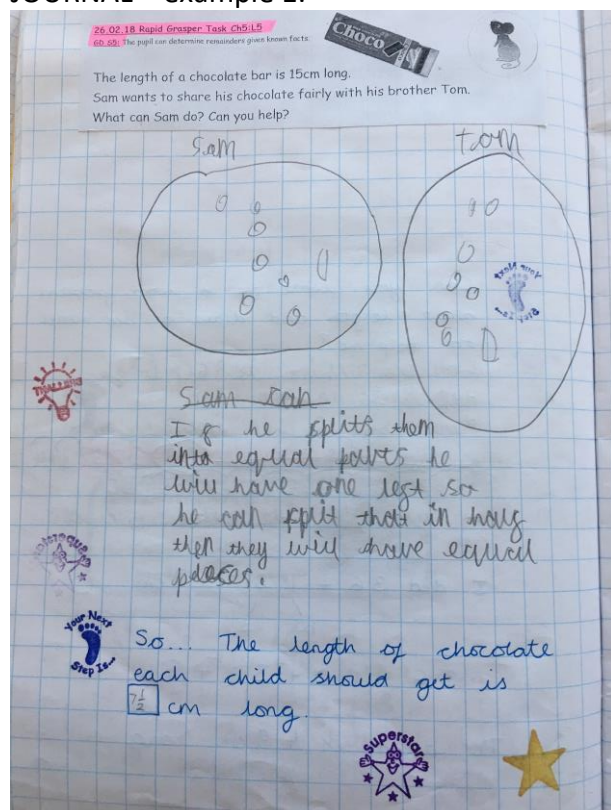 JOURNAL – example 2:
26.02.18 Rapid Grasper Task Ch5:L5
GD 65: The pupil can determine remainders given known facts.
Choco
The length of a chocolate bar is 15cm long.
Sam wants to share his chocolate fairly with his brother Tom.
What can Sam do? Can you help?
Sam
tom
Your Next
Step Is...
Sam can
If he splits them
into equal parts he
will have one left so
he can split that in half
then they will have equal
pieces.
Your Next
Step Is...
So... The length of chocolate
each child should get is
7 1/2 cm long.
Superstar